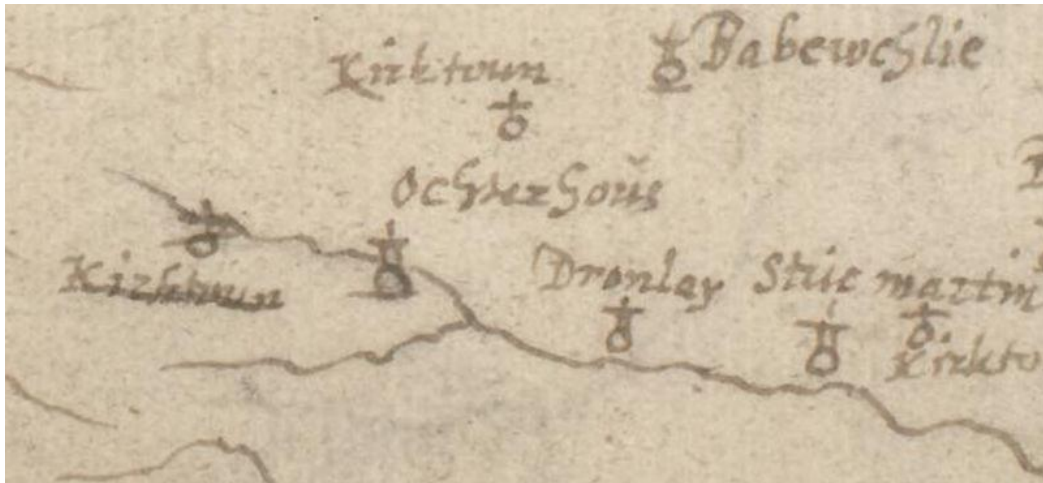 Kirktoun
Babewchlie
Ochterhouß
Kirktoun
Dronlay
Stric martin
Kirkto